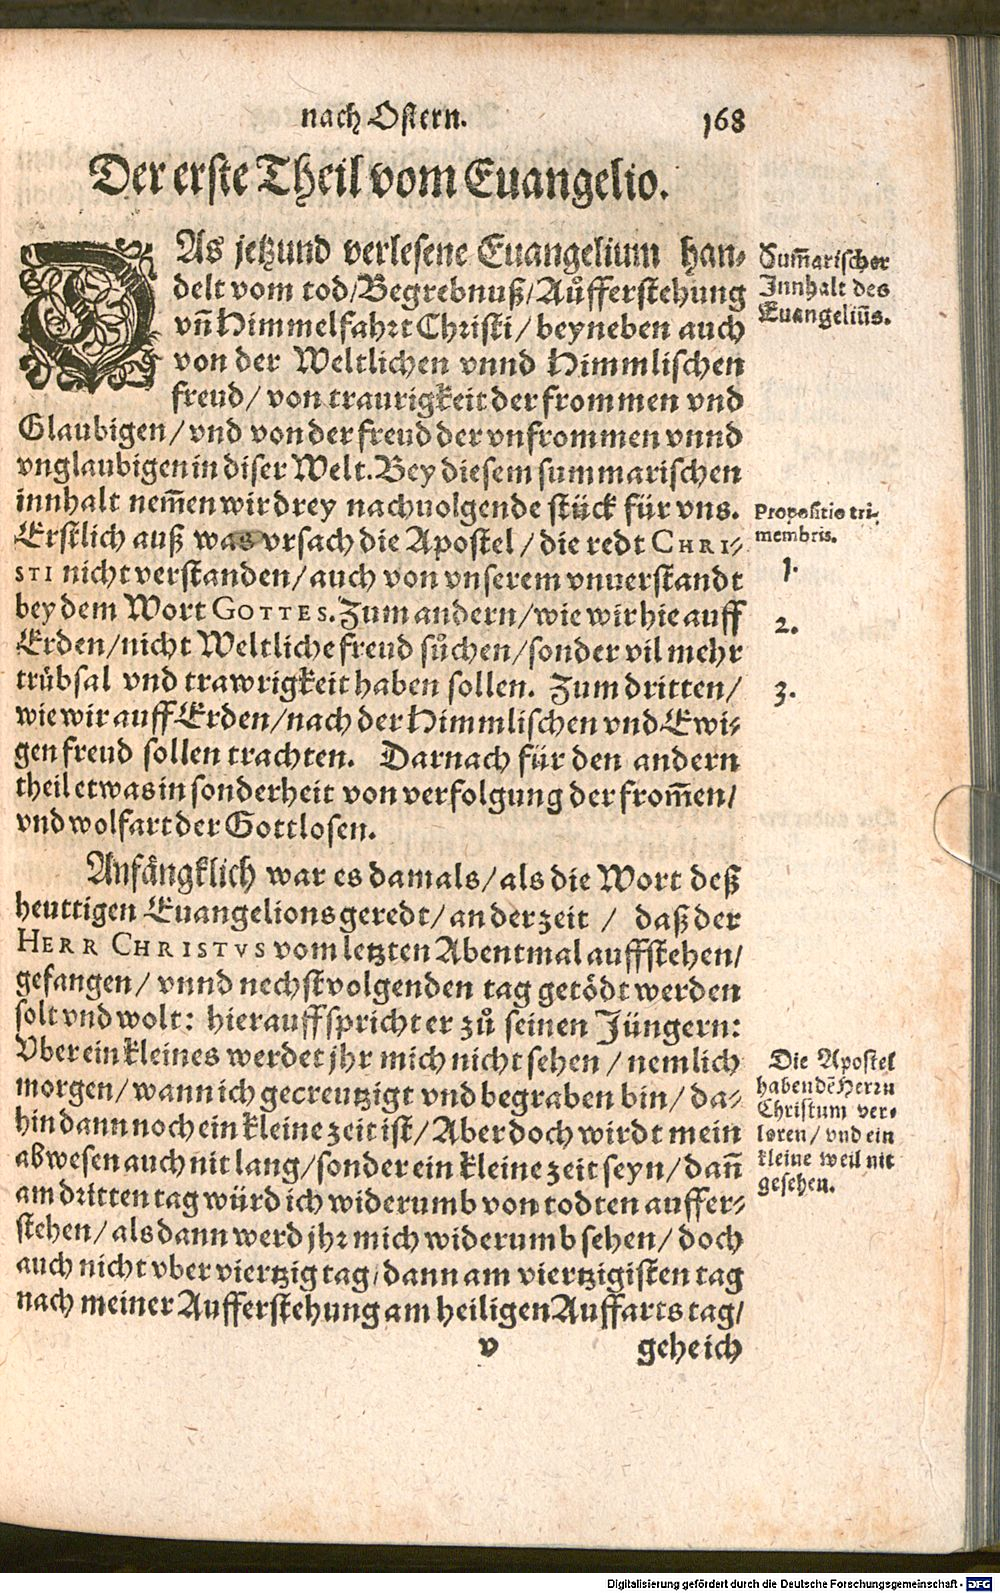 nach Ostern.
168
Der erste Theil vom Euangelio.
DAs jetzund verlesene Euangelium han-
delt vom tod/Begrebnuß/Aufferstehung
vñ Himmelfahrt Christi/beyneben auch
von der Weltlichen vnnd Himmlischen
freud/von traurigkeit der frommen vnd
Glaubigen/vnd von der freud der vnfrommen vnnd
vnglaubigen in diser Welt. Bey diesem summarischen
innhalt nem̃en wir drey nachuolgende stück für vns.
Erstlich auß was vrsach die Apostel/die redt CHRI-
STI nicht verstanden/auch von vnserem vnuerstandt
bey dem Wort GOTTES. Zum andern/wie wir hie auff
Erden/nicht Weltliche freud sůchen/sonder vil mehr
trübsal vnd trawrigkeit haben sollen. Zum dritten/
wie wir auff Erden/nach der Himmlischen vnd Ewi-
gen freud sollen trachten. Darnach für den andern
theil etwas in sonderheit von verfolgung der from̃en/
vnd wolfart der Gottlosen.
Anfängklich war es damals/als die Wort deß
heuttigen Euangelions geredt/an der zeit / daß der
HERR CHRISTVS vom letzten Abentmal auffstehen/
gefangen/vnnd nechstvolgenden tag getödt werden
solt vnd wolt: hierauff spricht er zů seinen Jüngern:
Vber ein kleines werdet jhr mich nicht sehen/nemlich
morgen/wann ich gecreutzigt vnd begraben bin/da-
hin dann noch ein kleine zeit ist/Aber doch wirdt mein
abwesen auch nit lang/sonder ein kleine zeit seyn/dañ
am dritten tag würd ich widerumb von todten auffer-
stehen/als dann werd jhr mich widerumb sehen/doch
auch nicht vber viertzig tag/dann am viertzigisten tag
nach meiner Aufferstehung am heiligen Auffarts tag/
v
geheich
Sum̃arischer
Innhalt des
Euangeliũs.
Propositio tri-
membris.
1.
2.
3.
Die Apostel
haben dẽ Herrn
Christum ver-
loren/vnd ein
kleine weil nit
gesehen.
Digitalisierung gefördert durch die Deutsche Forschungsgemeinschaft - DFG